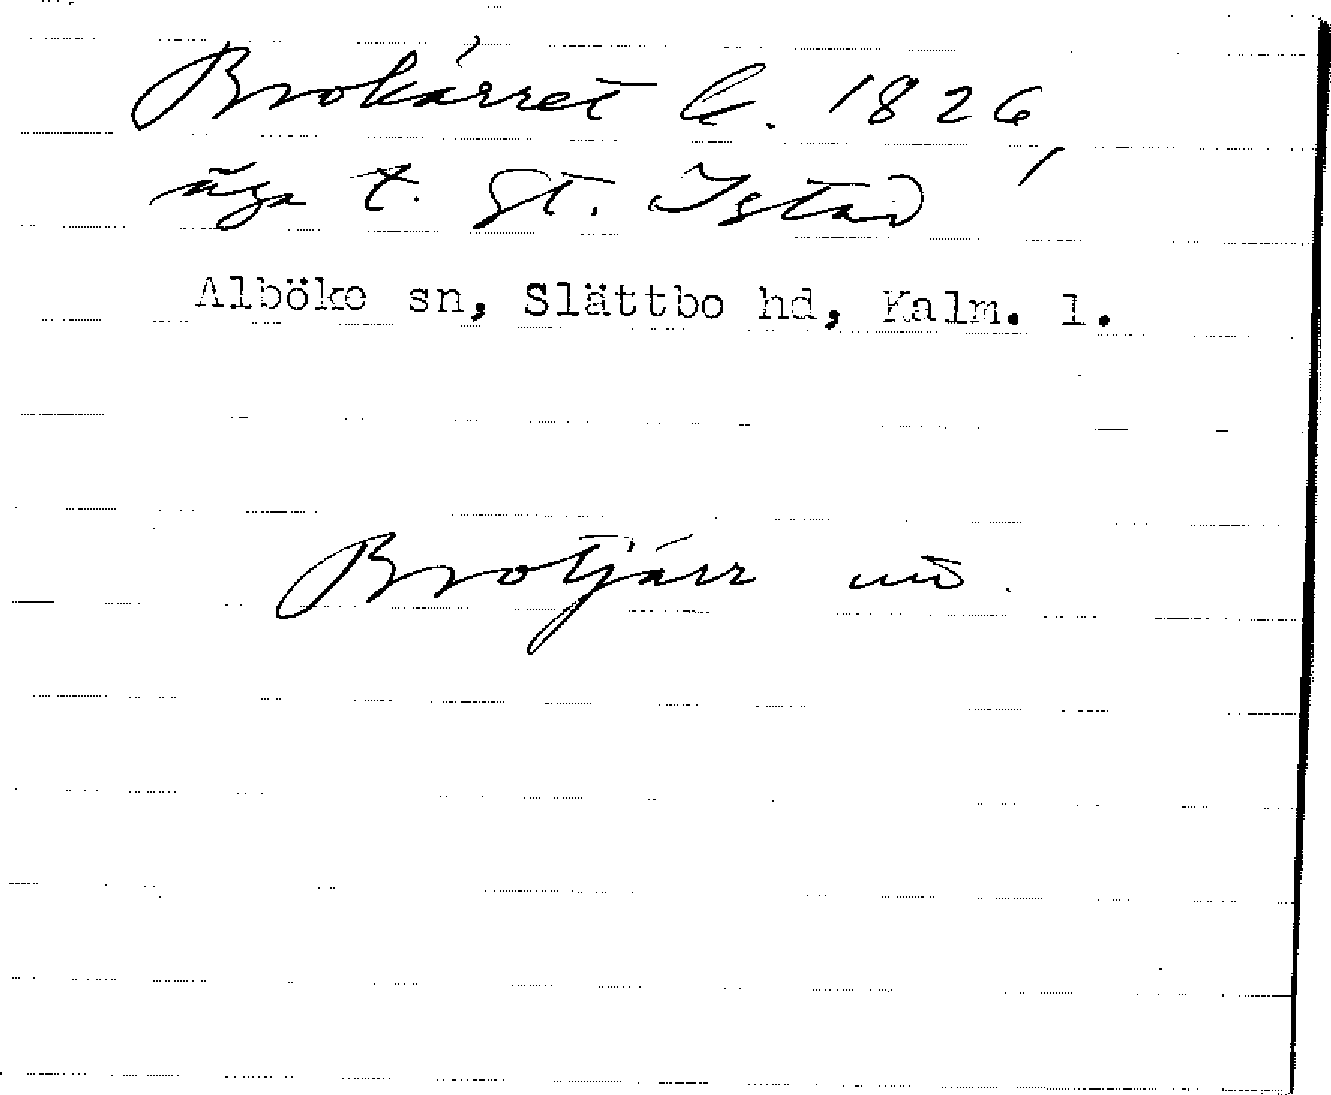 Brokärret k. 1826,
äga t. St. Istad
Alböke sn, Slättbo hd, Kalm. l.
Brotjärr